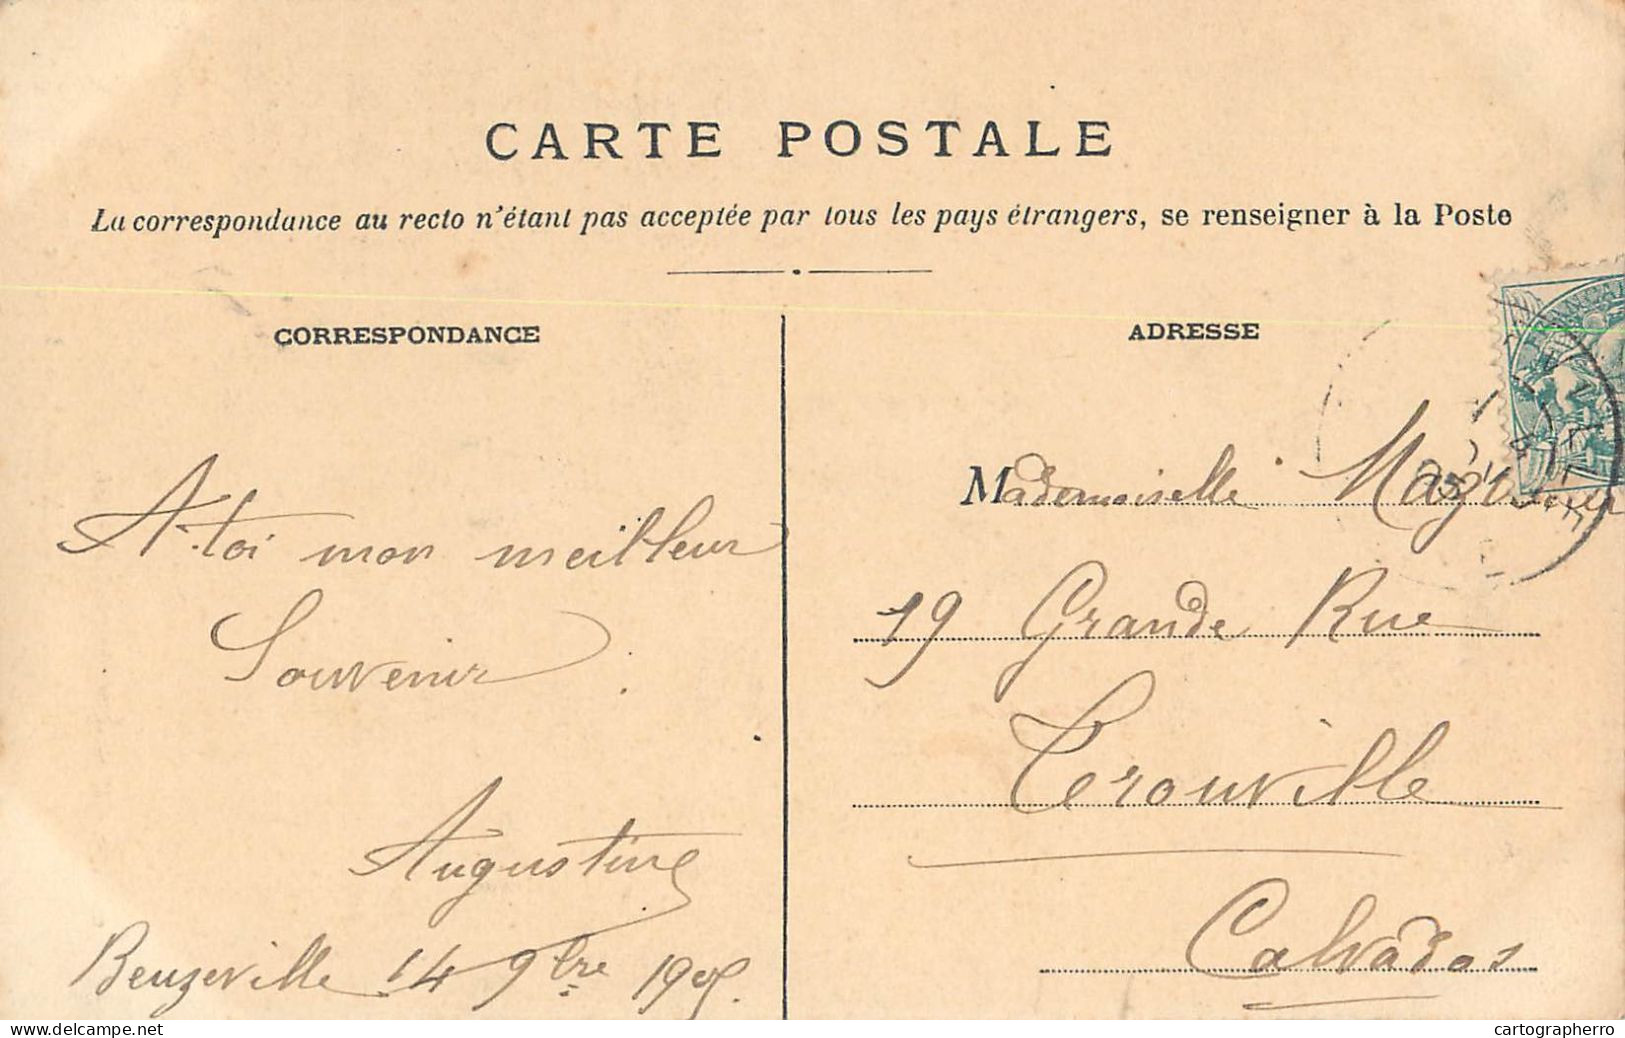 CARTE POSTALE
La correspondance au recto n'étant pas acceptée par tous les pays étrangers, se renseigner à la Poste
CORRESPONDANCE
A toi mon meilleur
Souvenir.
Augustine
Beuzeville 14 9bre 1905.
ADRESSE
Mademoiselle
19 Grande Rue
Terouville
Calvados
www.delcampe.net
cartographerro